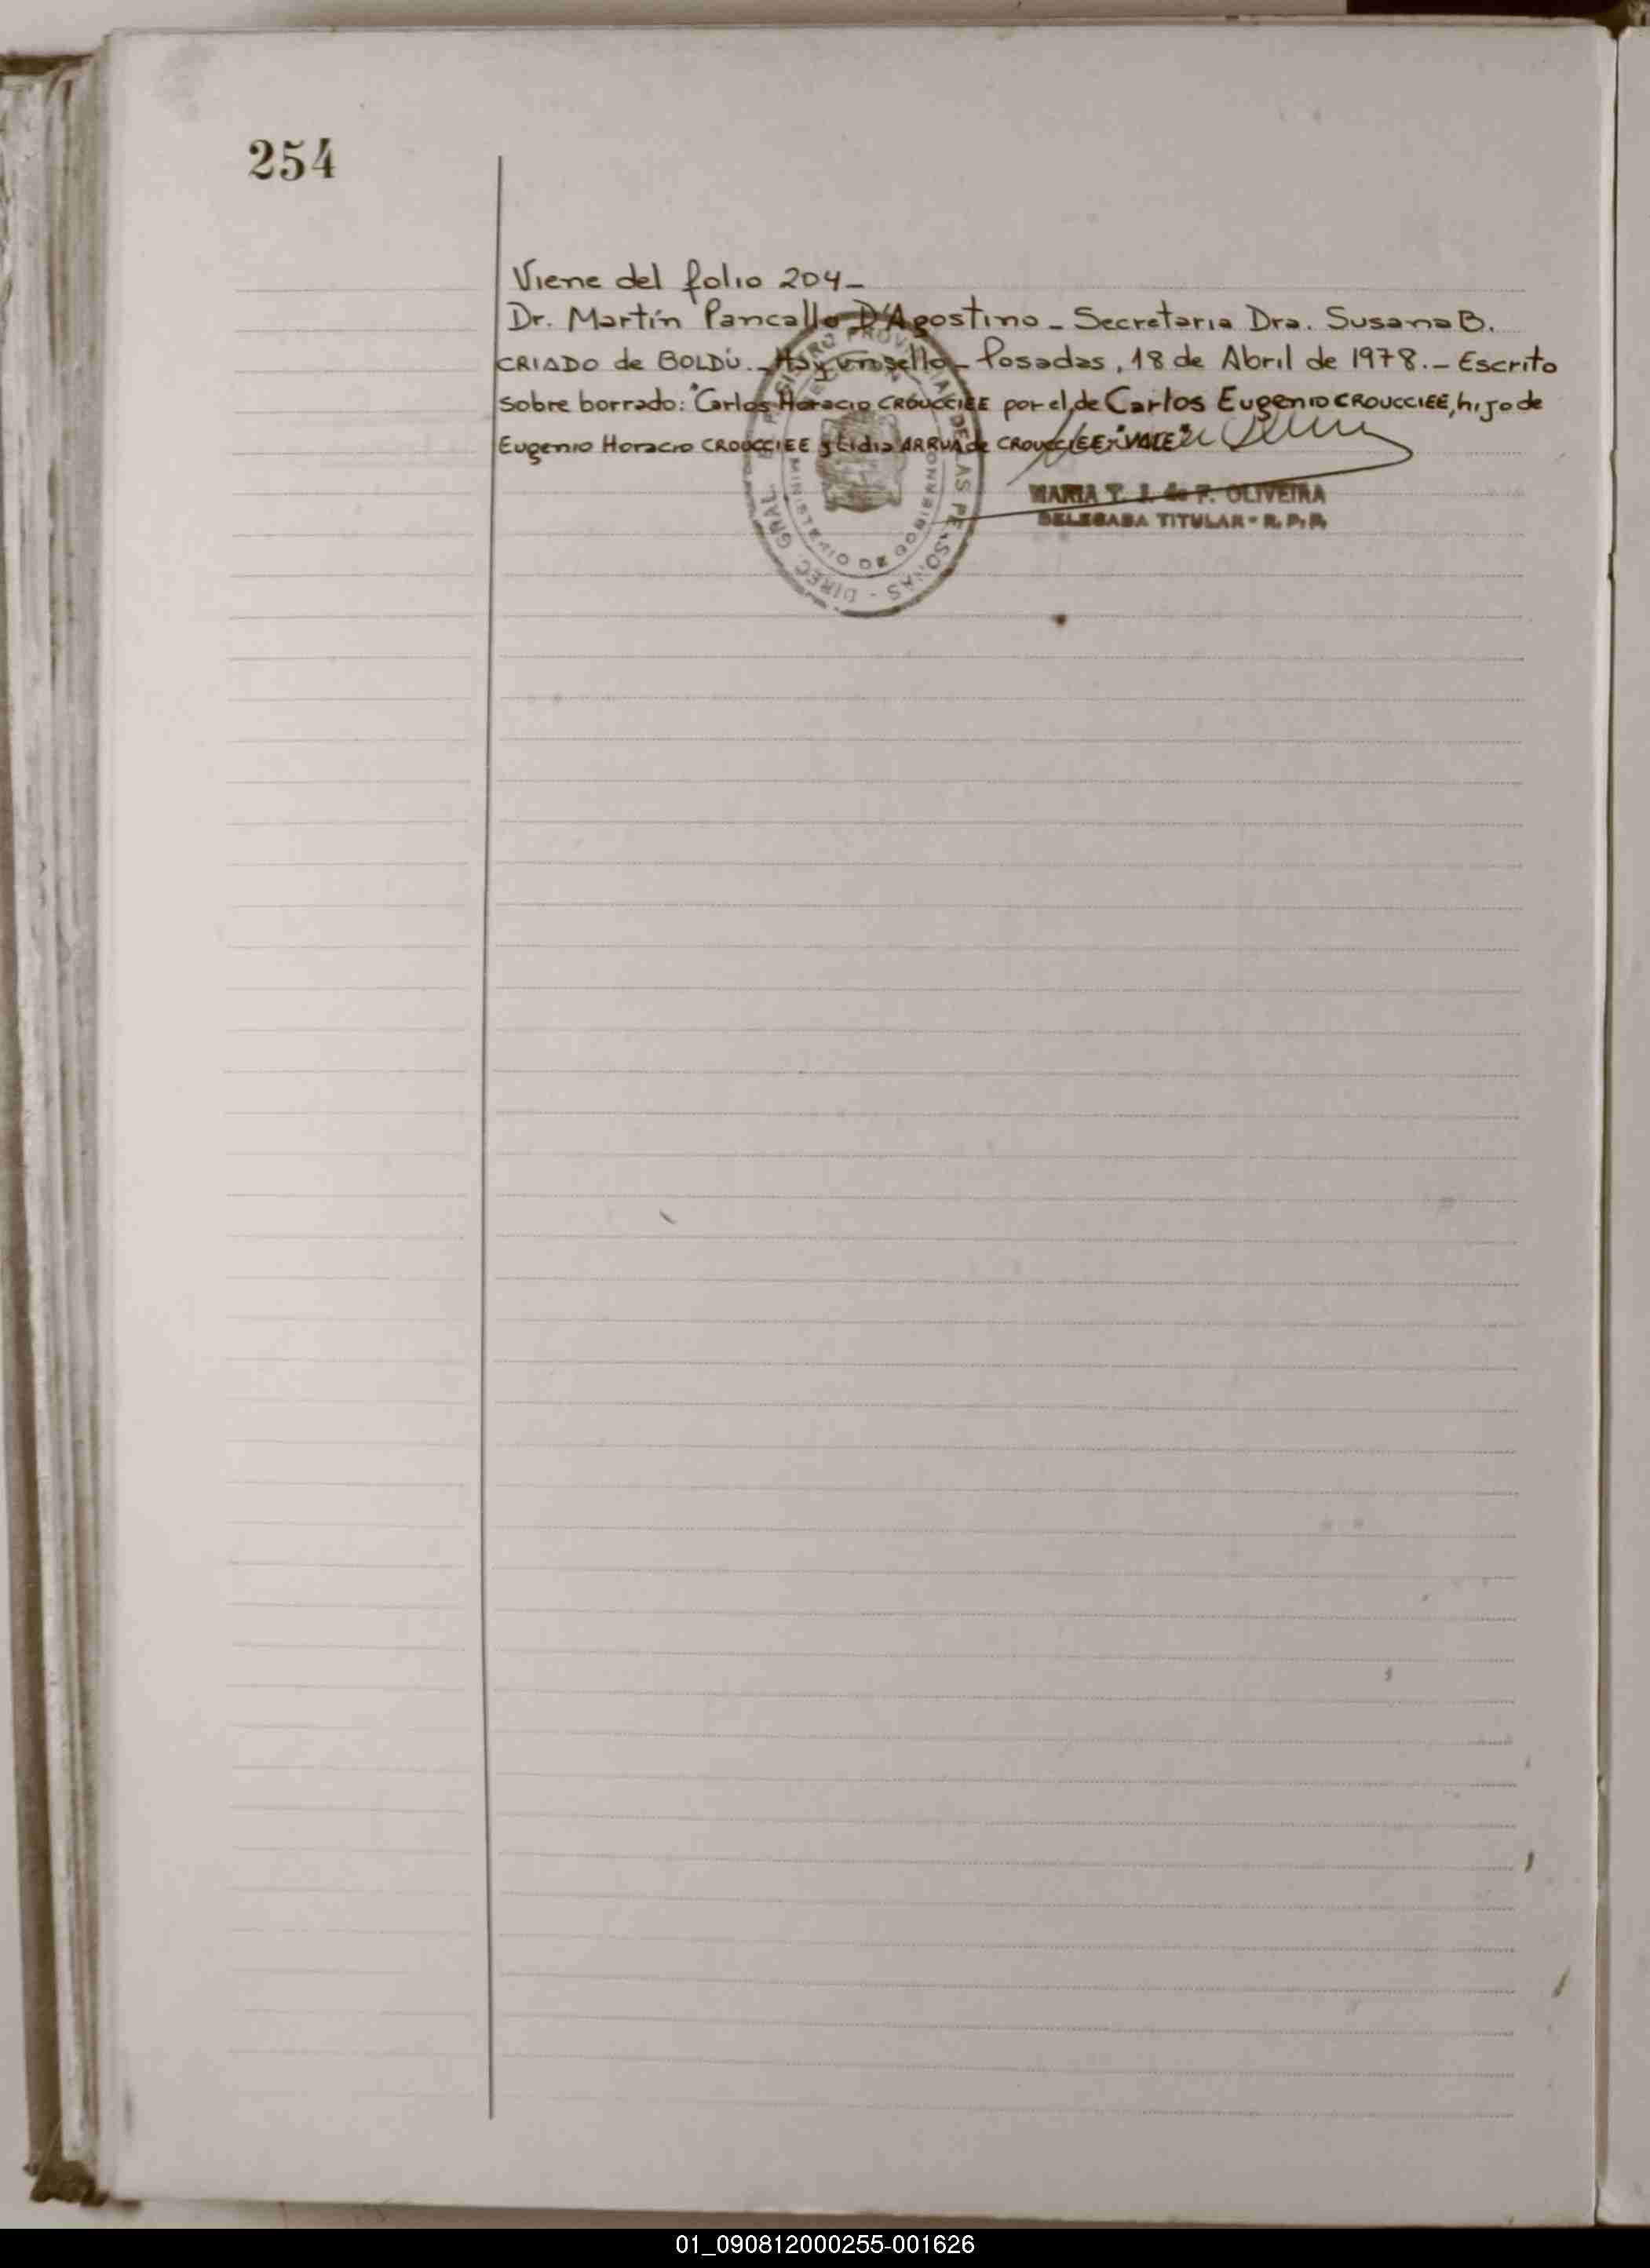 254
Viene del folio 204-
Dr. Martín Pancallo D'Agostino - Secretaria Dra. Susana B.
CRIADO de BOLDÚ. - Hay un sello - Posadas, 18 de Abril de 1978. - Escrito
sobre borrado: "Carlos Horacio CROUCCIEE por el de Carlos Eugenio CROUCCIEE, hijo de
Eugenio Horacio CROUCCIEE y Lidia ARRUA de CROUCCIEE: "VALE"
MARIA T. J. de F. OLIVEIRA
DELEGADA TITULAR - R. P. P.
DIREC. GRAL. REGISTRO PROVINCIAL DE LAS PERSONAS -
MINISTERIO DE GOBIERNO
01_090812000255-001626